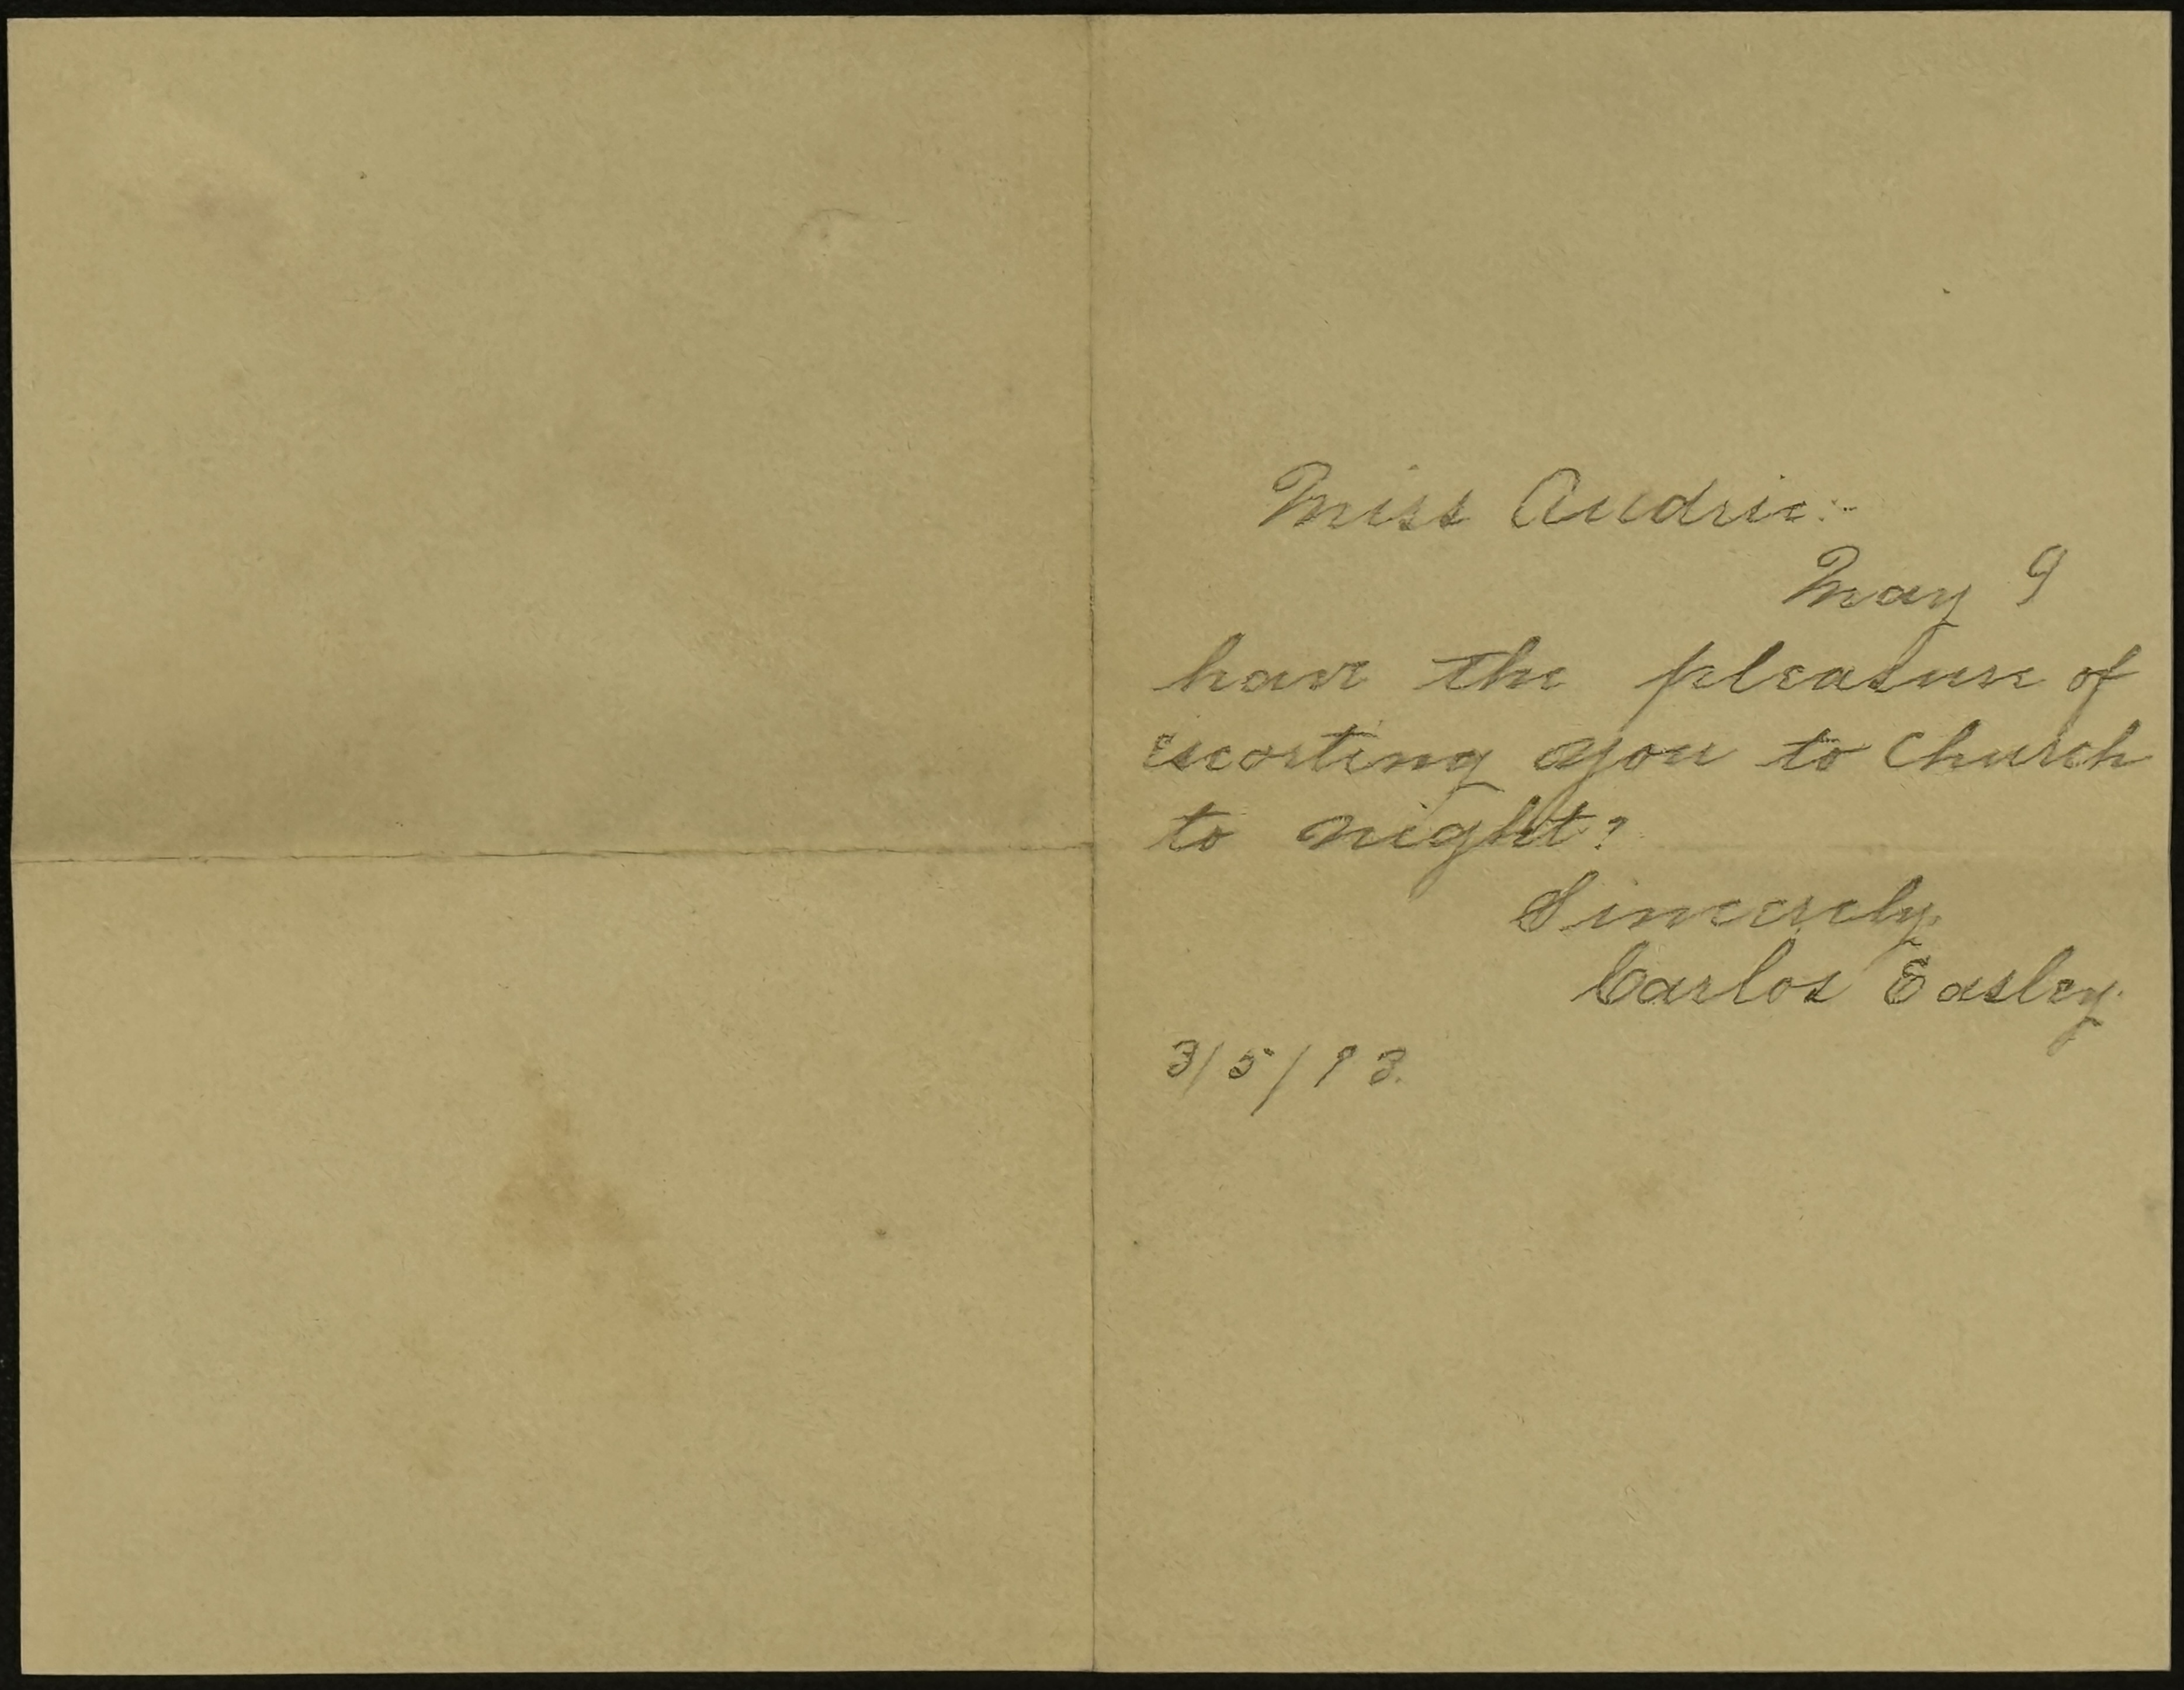 Miss Audrie:-
May I
have the pleasure of
escorting you to Church
to night?
Sincerely,
Carlos Easley.
3/5/93.